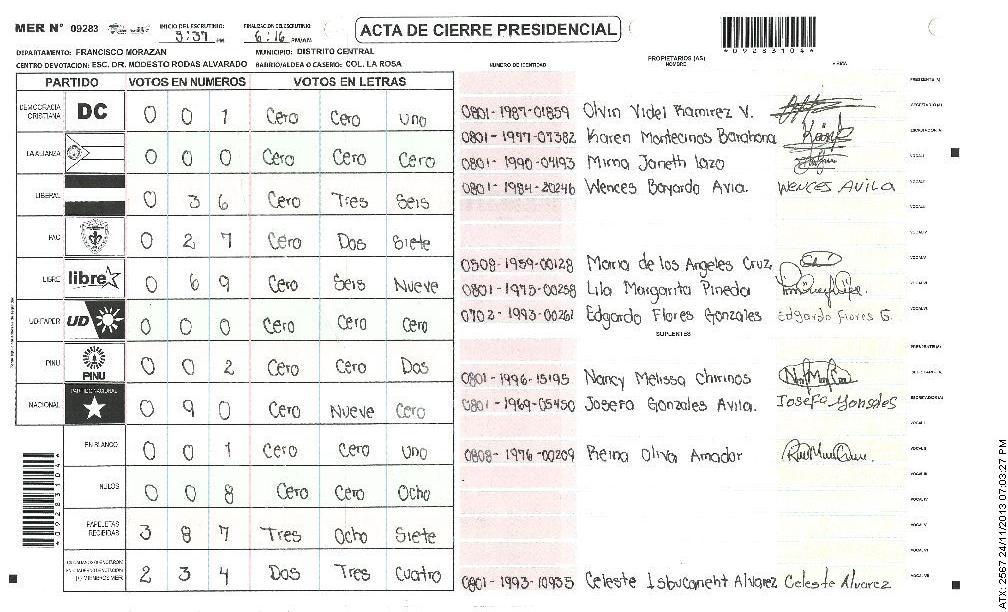 MER Nº 09283
INICIO DEL ESCRUTINIO: 3:37 PM
FINALIZACION DEL ESCRUTINIO: 6:16 PM/AM
ACTA DE CIERRE PRESIDENCIAL
*09283104*
DEPARTAMENTO: FRANCISCO MORAZAN MUNICIPIO: DISTRITO CENTRAL
CENTRO DE VOTACION: ESC. DR. MODESTO RODAS ALVARADO BARRIO/ALDEA O CASERIO: COL. LA ROSA
PARTIDO VOTOS EN NUMEROS VOTOS EN LETRAS
DEMOCRACIA CRISTIANA DC 0 0 1 Cero Cero uno
LA ALIANZA 0 0 0 Cero Cero Cero
LIBERAL 0 3 6 Cero Tres Seis
PAC 0 2 7 Cero Dos Siete
LIBRE libre 0 6 9 Cero Seis Nueve
UD-FAPER UD 0 0 0 Cero Cero Cero
PINU PINU 0 0 2 Cero Cero Dos
NACIONAL PARTIDO NACIONAL 0 9 0 Cero Nueve Cero
EN BLANCO 0 0 1 Cero Cero uno
NULOS 0 0 8 Cero Cero Ocho
PAPELETAS RECIBIDAS 3 8 7 Tres Ocho Siete
2 3 4 Dos Tres Cuatro
*09283104*
NUMERO DE IDENTIDAD PROPIETARIOS (AS) NOMBRE FIRMA
PRESIDENTE (A)
0801-1987-01859 Olvin Videl Ramirez V. SECRETARIO (A)
0801-1997-07382 Karen Montecinos Barahona ESCRUTADOR (A)
0801-1990-04193 Mirna Janeth Lazo VOCAL I
0801-1984-20246 Wences Bayardo Avia. WENCES AVILA VOCAL II
VOCAL III
VOCAL IV
0508-1959-00128 Maria de los Angeles Cruz VOCAL V
0801-1975-00258 Lila Margarita Pineda VOCAL VI
0702-1993-00261 Edgardo Flores Gonzales Edgardo Flores G. VOCAL VII
SUPLENTES
PRESIDENTE (A)
0801-1996-15195 Nancy Melissa Chirinos SECRETARIO (A)
0801-1969-05450 Josefa Gonzales Avila. Josefa Gonsales ESCRUTADOR (A)
VOCAL I
0808-1976-00209 Reina Oliva Amador VOCAL II
VOCAL III
VOCAL IV
VOCAL V
VOCAL VI
0801-1993-10935 Celeste Isbucaneht Alvarez Celeste Alvarez VOCAL VII
ATX-2567 24/11/2013 07:03:27 PM